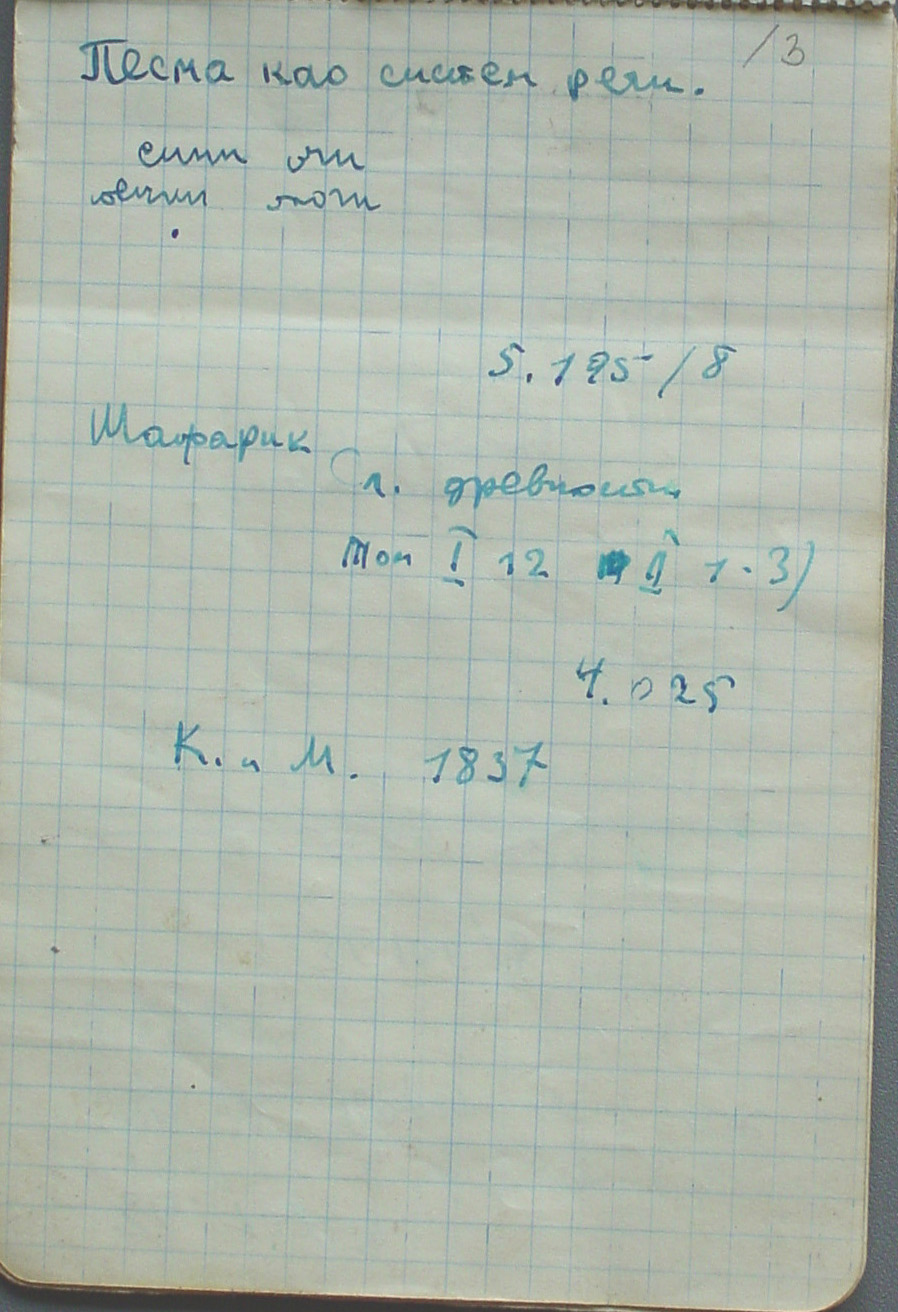 /3
Песма као систем речи.
сини очи
ноћи
5.195/8
Шафарик
Сл. древности
Том I 12 II 1.3)
4.025
К. и М. 1837